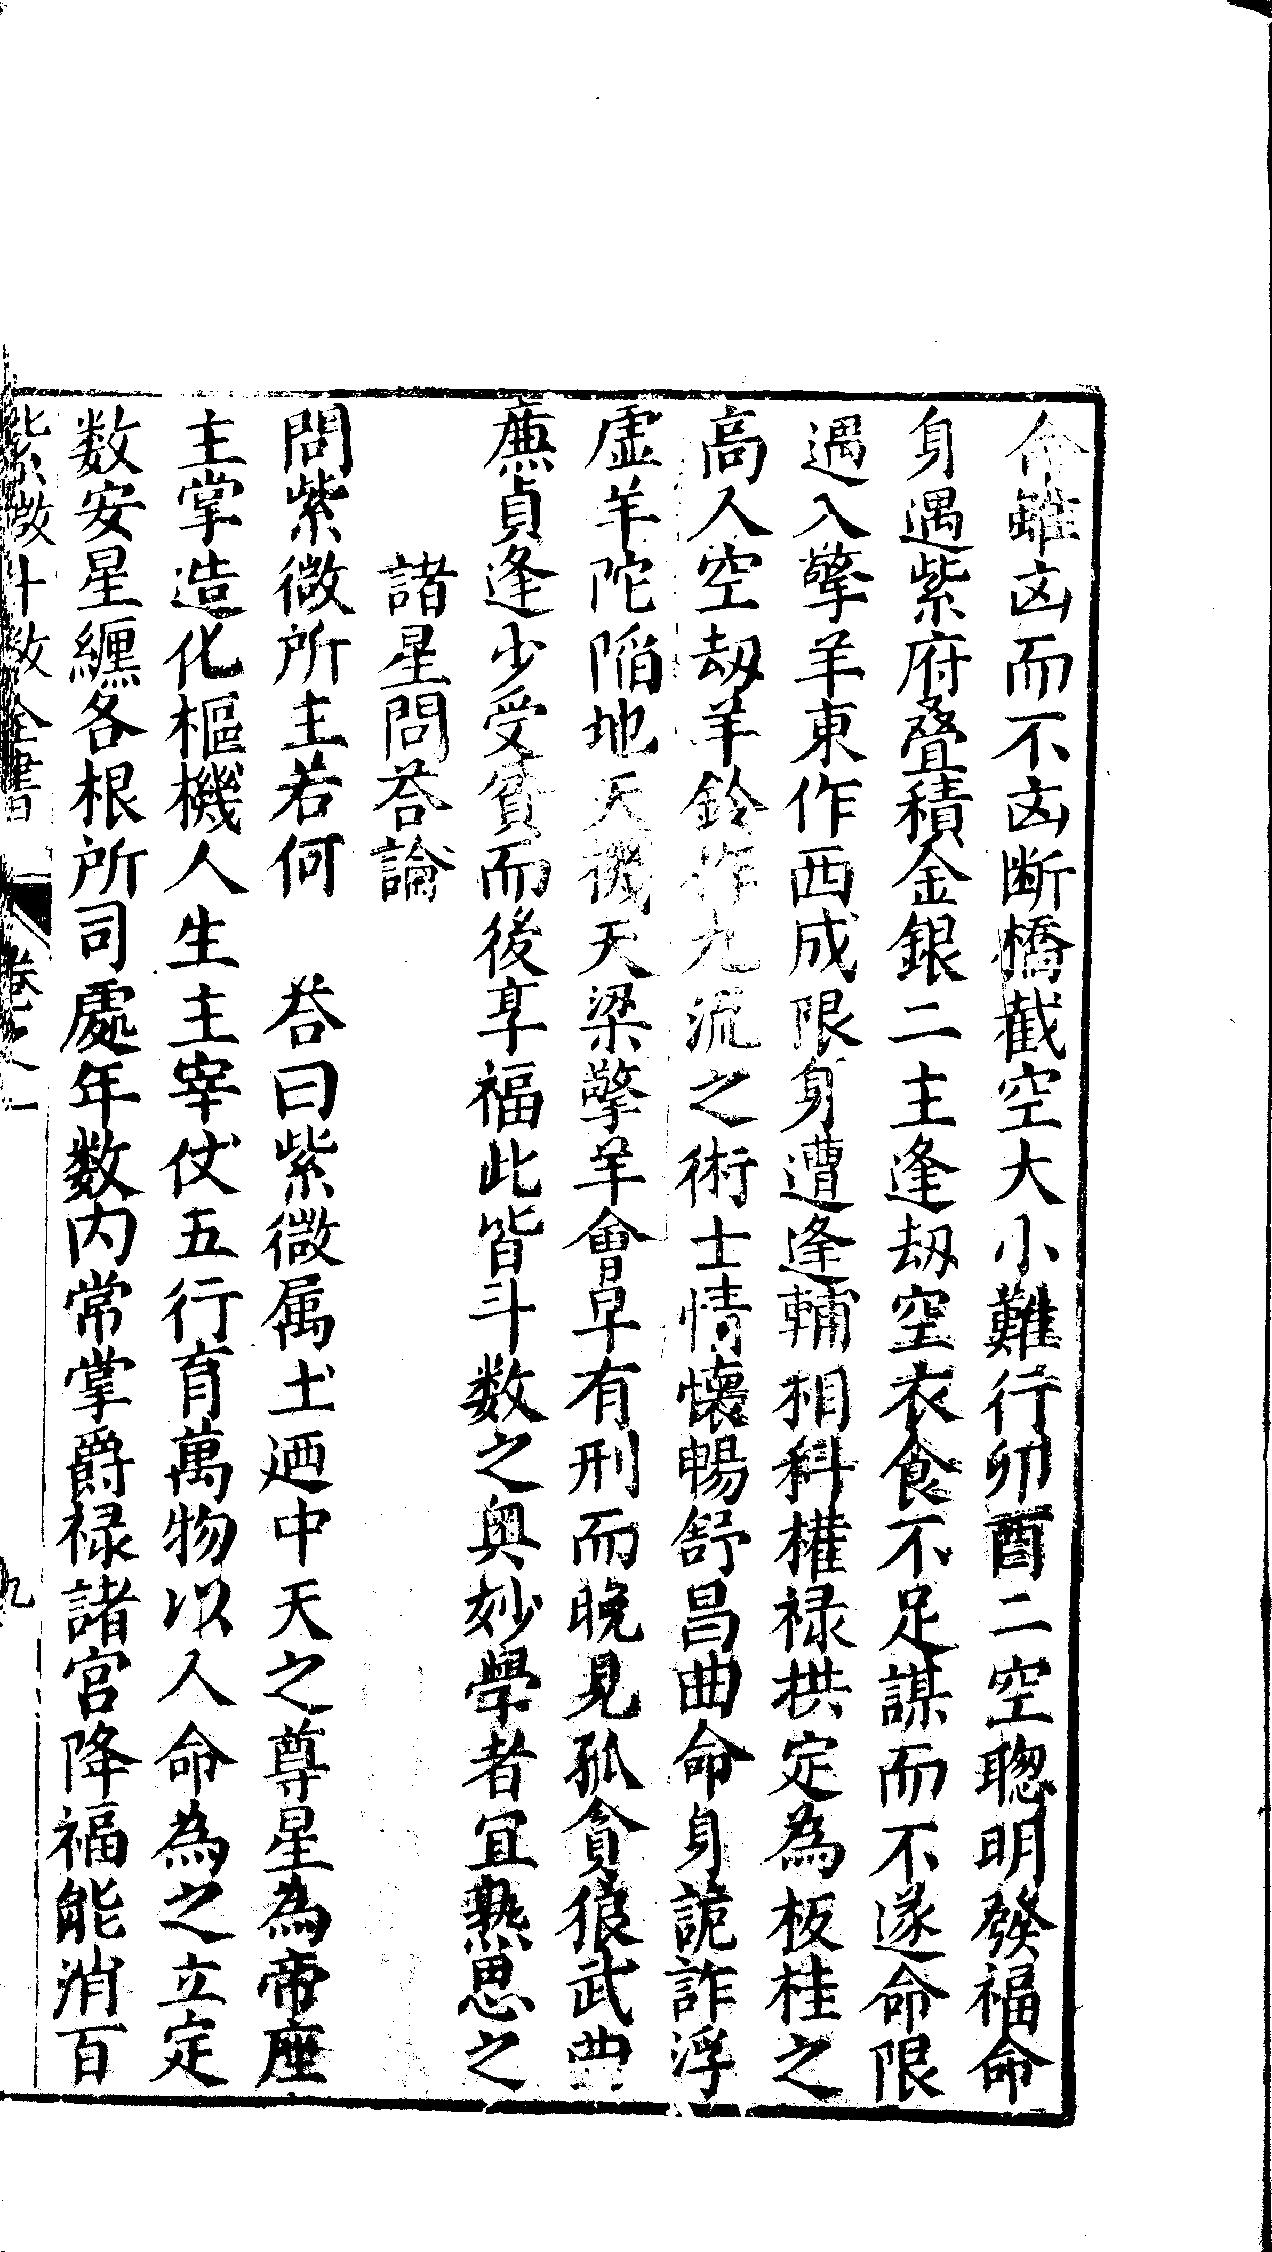 命雖凶而不凶断橋截空大小難行卯酉二空聦明發福命
身遇紫府叠積金銀二主逢劫空衣食不足謀而不遂命限
遇入擎羊東作西成限身遭逢輔相科權禄拱定為板桂之
高人空劫羊鈴作九流之術士情懷暢舒昌曲命身詭詐浮
虚羊陀陷地天機天梁擎羊會早有刑而晚見孤貪狼武曲
廉貞逢少受貧而後享福此皆斗数之奥妙學者宜熟思之
諸星問荅論
問紫微所主若何　荅曰紫微属土廼中天之尊星為帝座
主掌造化樞機人生主宰仗五行育萬物以人命為之立定
数安星纏各根所司處年数内常掌爵禄諸宮降福能消百
紫微斗数全書　卷之一　九